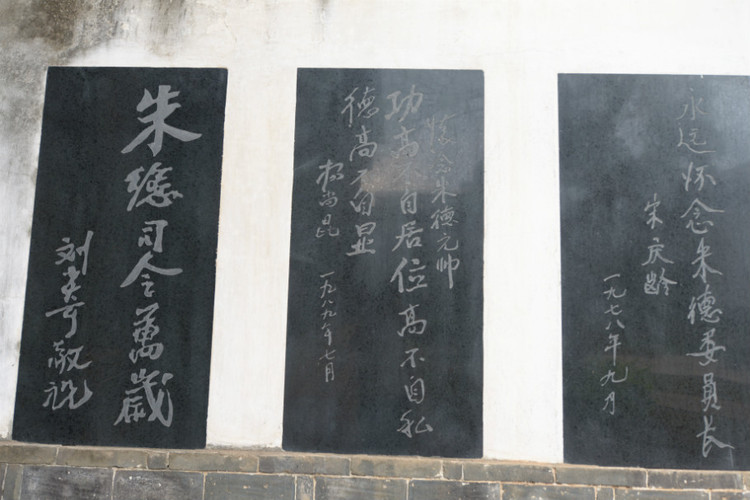 永远怀念朱德委員长
宋庆龄
一九七八年九月
懷念朱德元帅
功高不自居位高不自私
德高不自显
杨尚昆 一九八九年七月
朱總司令萬歲
刘奇敬祝